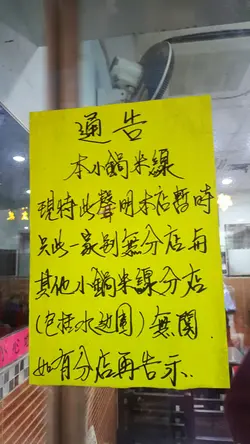 通告
本小鍋米線
現特此聲明本店暫時
只此一家別無分店與
其他小鍋米線分店
(包括水边圍)無関
如有分店再告示..